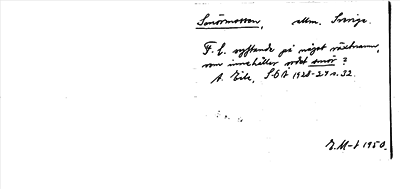 Smörmossen, allm. Sverige.
F. l. syftande på något växtnamn,
som innehåller ordet smör?
A. Eile, SOÅ 1928-29 s. 32.
E.M-t 1950.